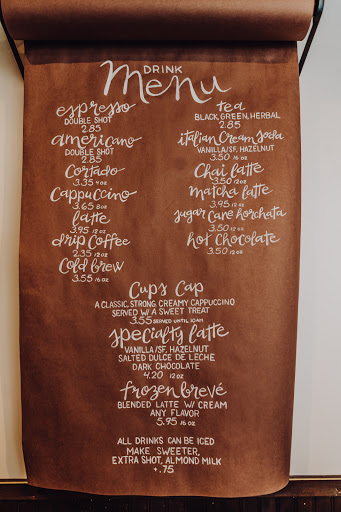 DRINK
Menu
espresso
DOUBLE SHOT
2.85
americano
DOUBLE SHOT
2.85
Cortado
3.35 4 OZ
Cappuccino
3.65 8 OZ
latte
3.95 12 OZ
drip Coffee
2.35 12 OZ
Cold brew
3.55 16 OZ
tea
BLACK, GREEN, HERBAL
2.85
italian Cream Soda
VANILLA/SF, HAZELNUT
3.50 16 OZ
Chai latte
3.50 12 OZ
Matcha latte
3.95 12 OZ
sugar Cane horchata
3.50 12 OZ
hot Chocolate
3.50 12 OZ
Cups Cap
A CLASSIC, STRONG CREAMY CAPPUCCINO
SERVED W/ A SWEET TREAT
3.55 SERVED UNTIL 10AM
specialty latte
VANILLA/SF, HAZELNUT
SALTED DULCE DE LECHE
DARK CHOCOLATE
4.20 12 OZ
frozen brevé
BLENDED LATTE W/ CREAM
ANY FLAVOR
5.95 16 OZ
ALL DRINKS CAN BE ICED
MAKE SWEETER,
EXTRA SHOT, ALMOND MILK
+.75